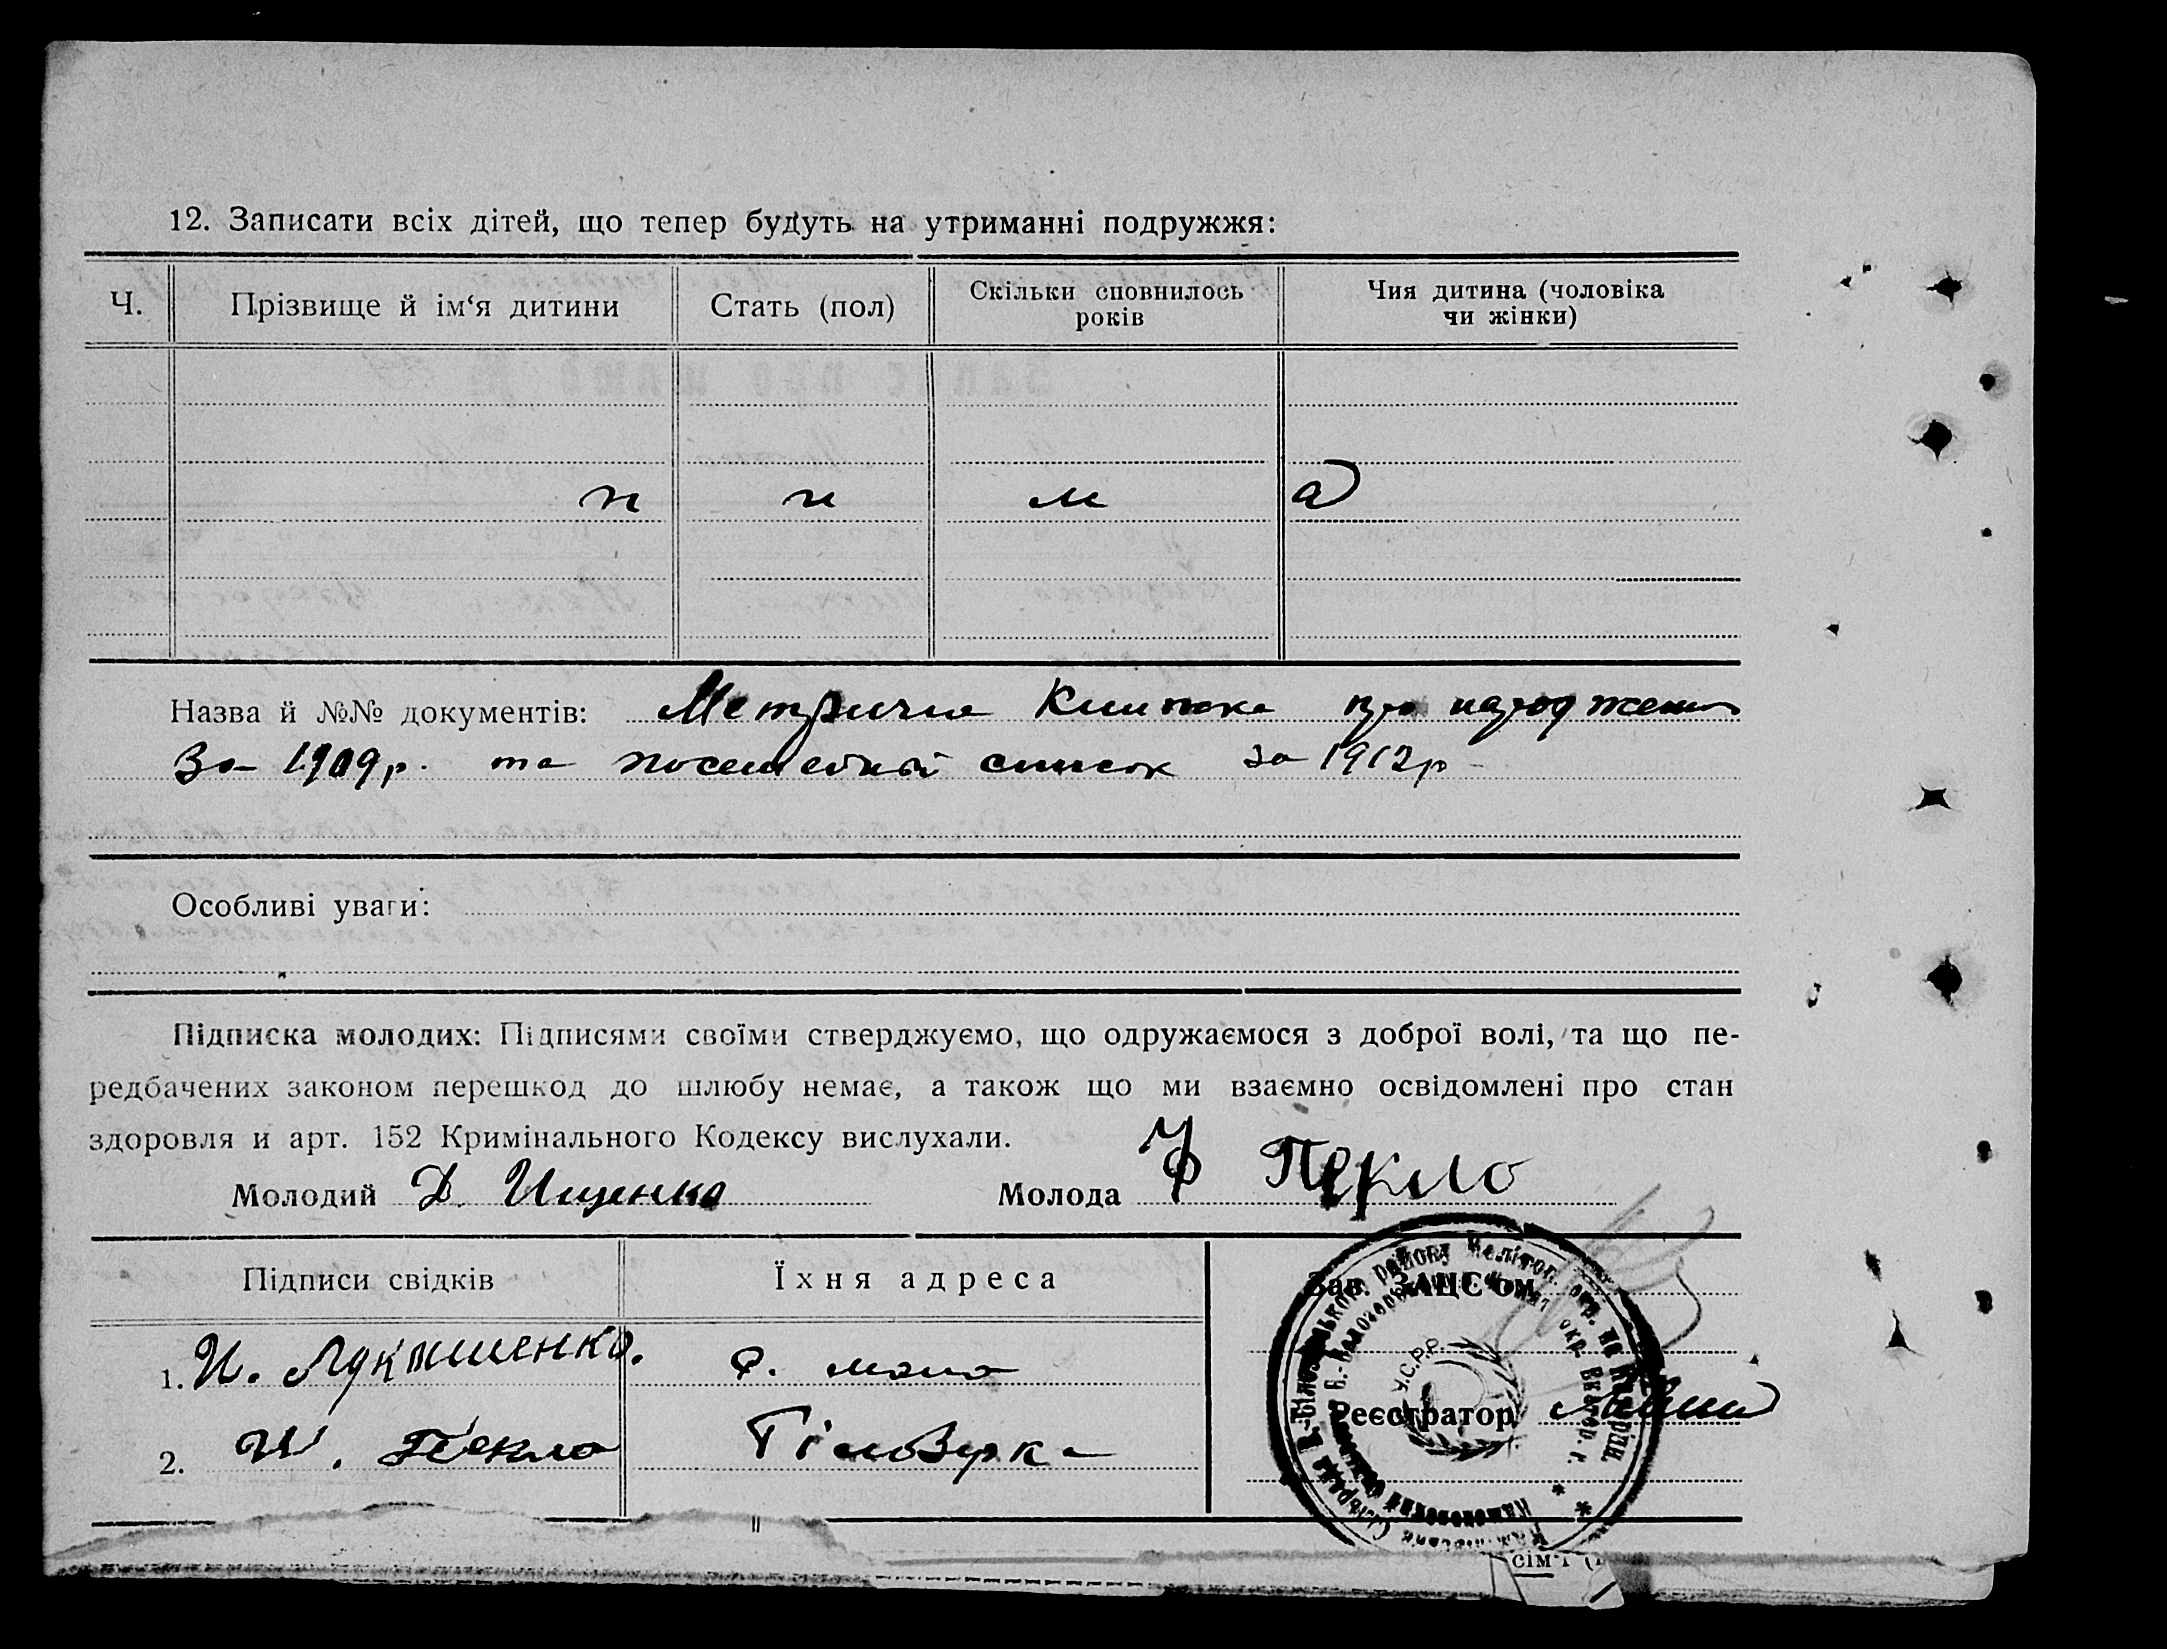 12. Записати всіх дітей, що тепер будуть на утриманні подружжя:
Ч. Прізвище й ім‘я дитини Стать (пол) Скільки сповнилось років Чия дитина (чоловіка чи жінки)
Назва й №№ документів: Метрична Книжка про народження
За 1909р. та посемейний список за 1912р
Особливі уваги:
Підписка молодих: Підписями своїми стверджуємо, що одружаємося з доброї волі, та що пе-
редбачених законом перешкод до шлюбу немає, а також що ми взаємно освідомлені про стан
здоровля и арт. 152 Кримінального Кодексу вислухали.
Молодий Д. Ищенко Молода Ф Пекло
Підписи свідків Їхня адреса Зав. ЗАЦС‘ом
1. И. Лукяшенко.
2. И. Пекло Реєстратор
У.С.Р.Р.
сім‘ї